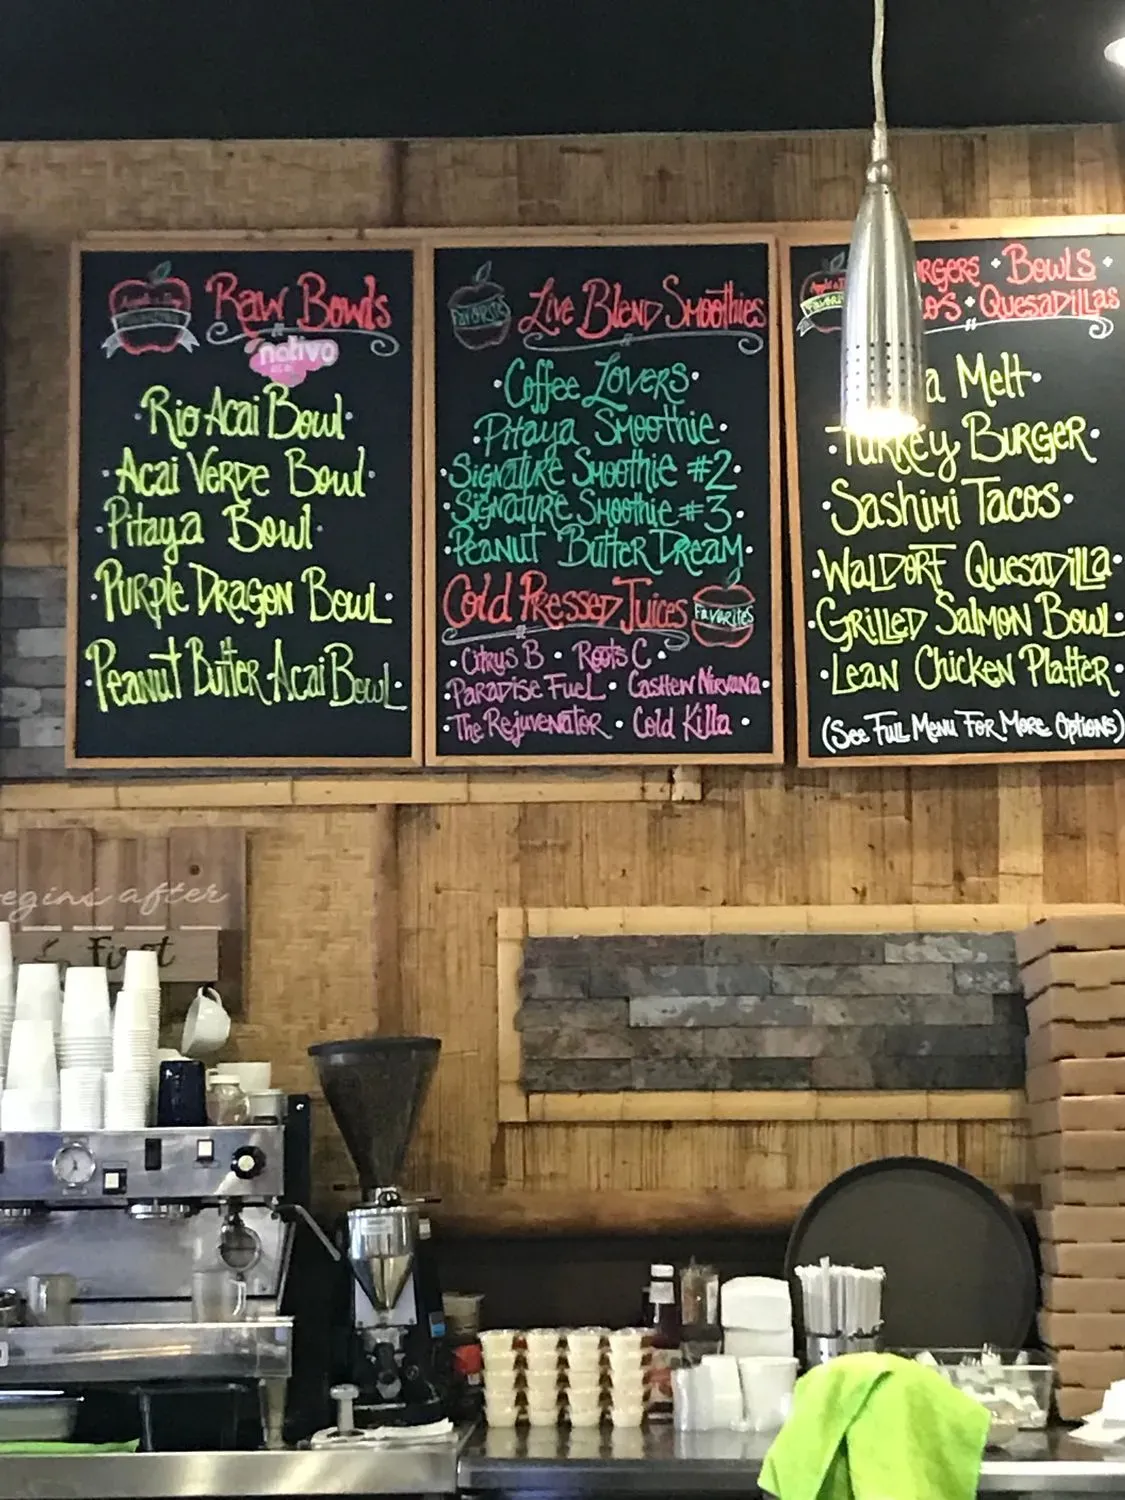 Apple a Day
Raw Bowls
nativo
Rio Acai Bowl
Acai Verde Bowl
Pitaya Bowl
Purple Dragon Bowl
Peanut Butter Acai Bowl
FAVORITES
Live Blend Smoothies
Coffee Lovers
Pitaya Smoothie
Signature Smoothie #2
Signature Smoothie #3
Peanut Butter Dream
Cold Pressed Juices
FAVORITES
Citrus B • Roots C
Paradise Fuel • Cashew Nirvana
The Rejuvenator • Cold Killa
Bowls
Quesadillas
Melt
Turkey Burger
Sashimi Tacos
Waldorf Quesadilla
Grilled Salmon Bowl
Lean Chicken Platter
(See Full Menu For More Options)
after
First